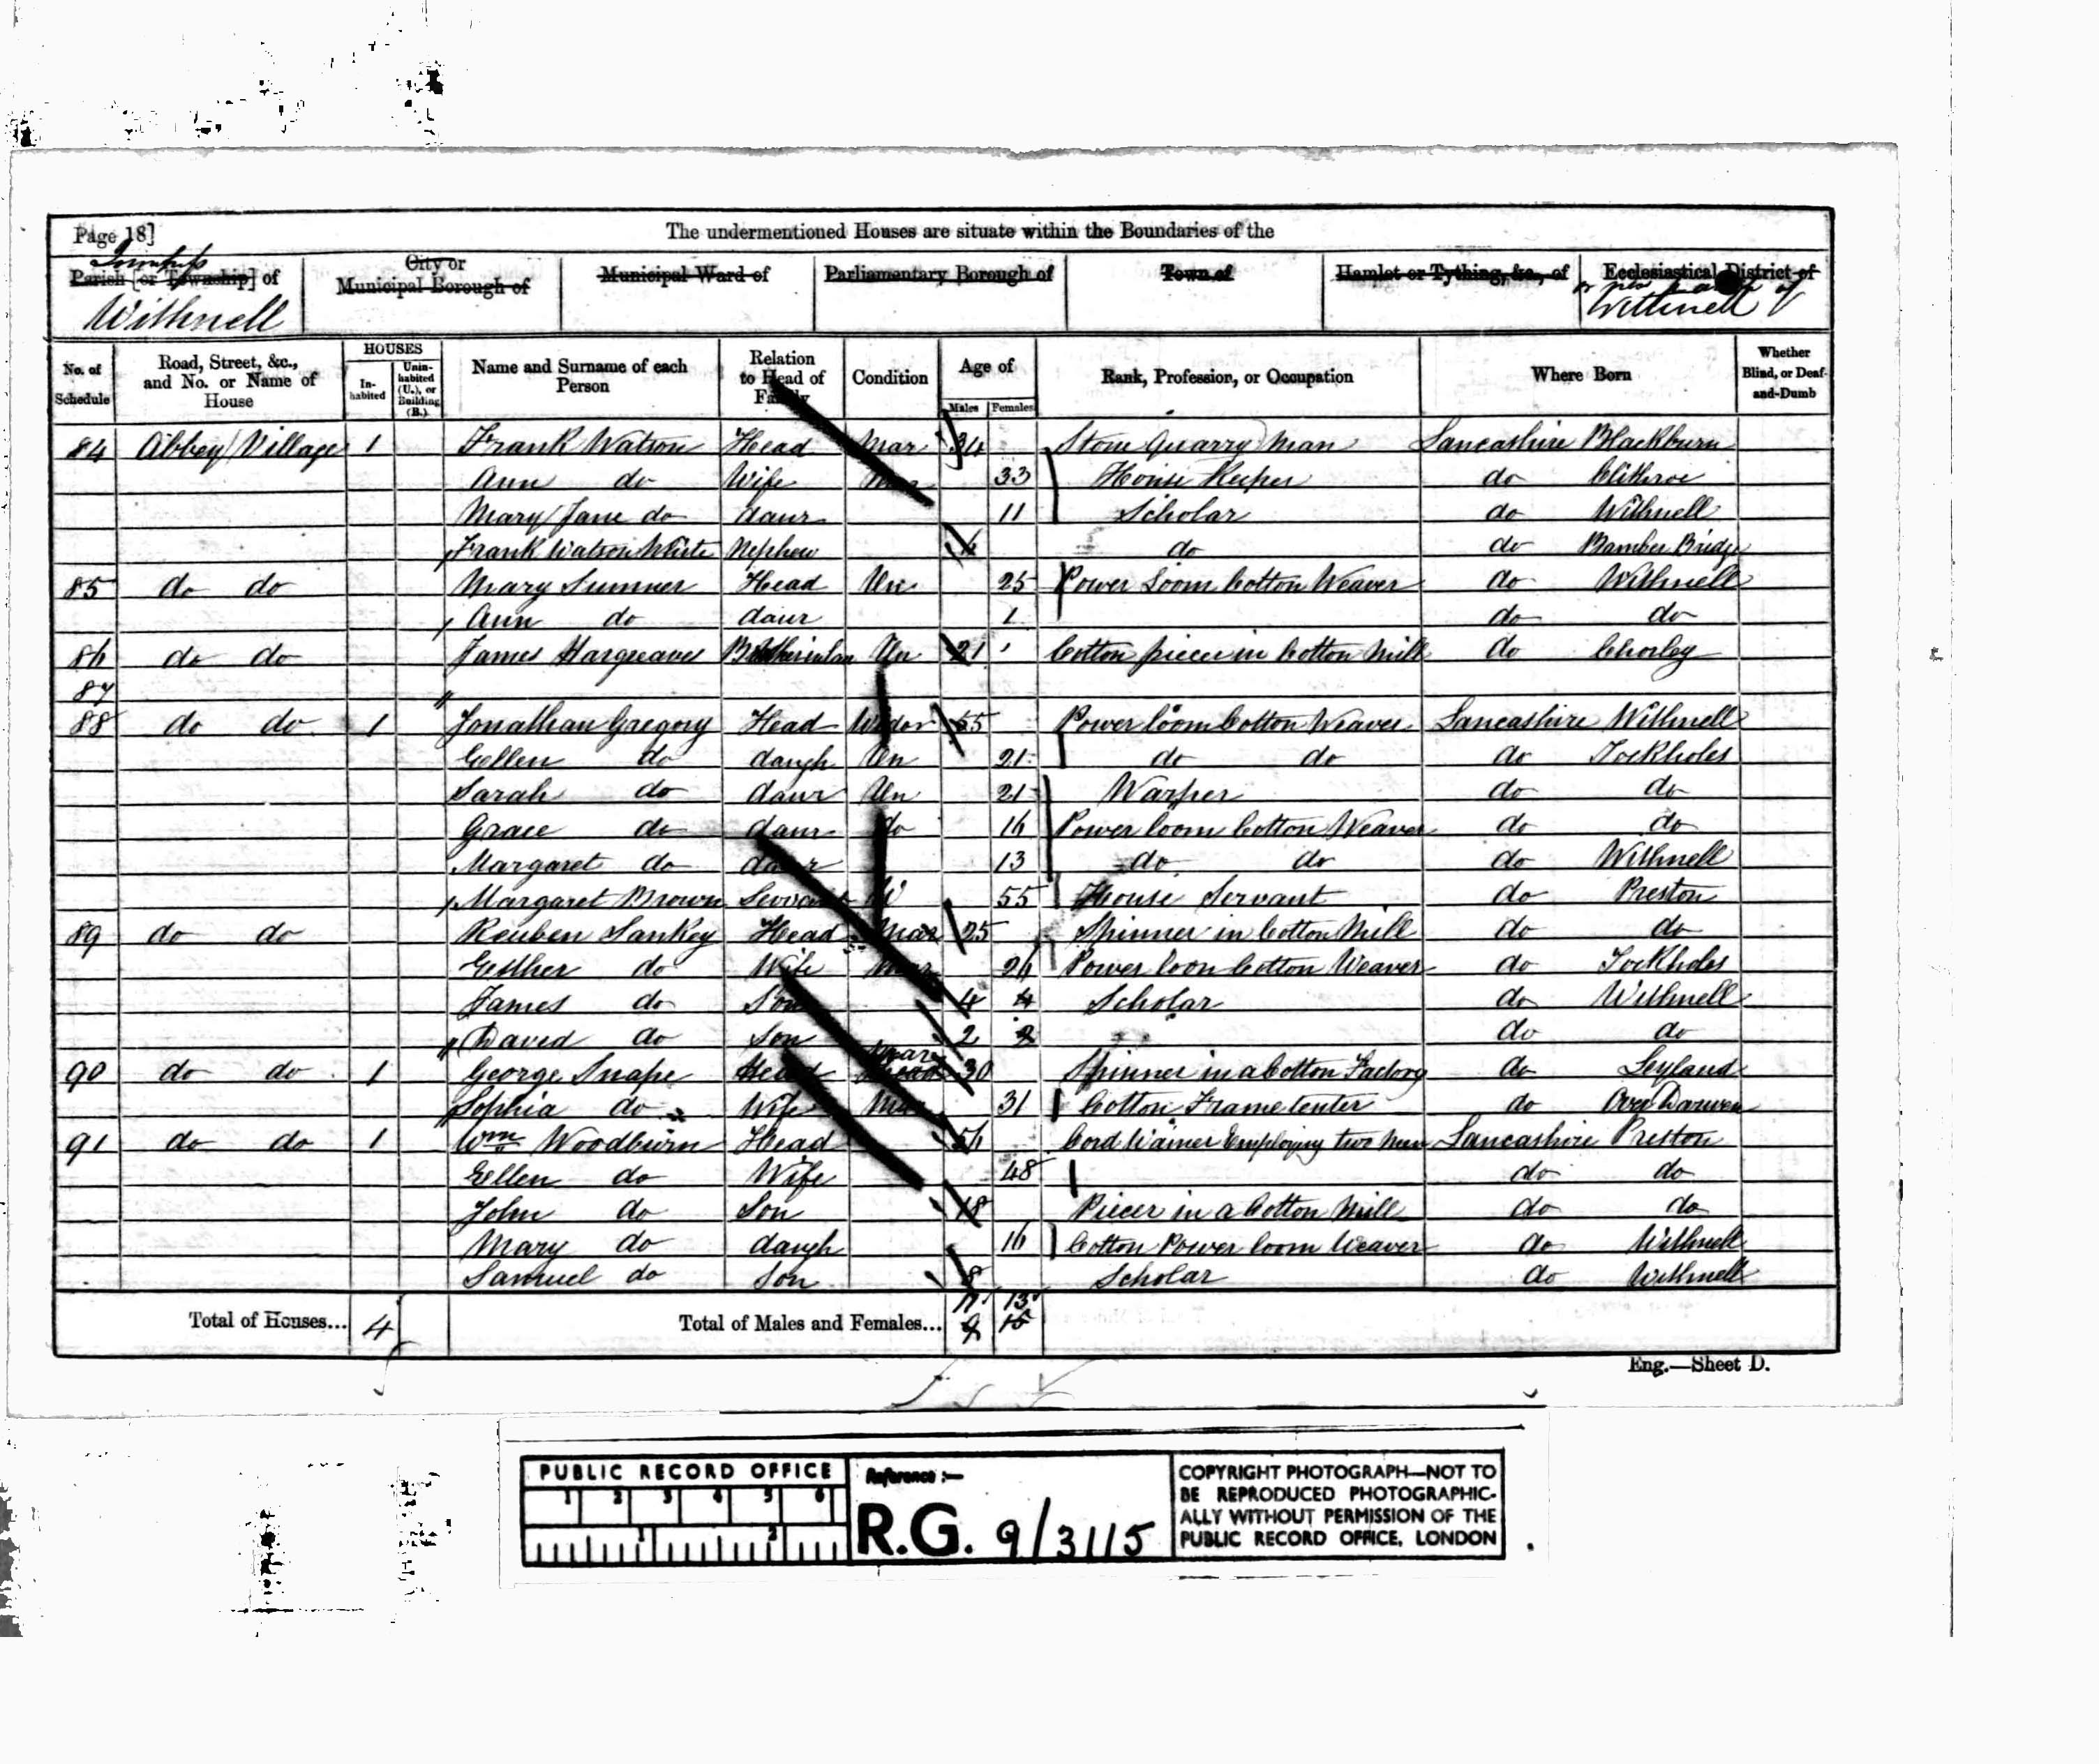 Page 18]
The undermentioned Houses are situate within the Boundaries of the
Township
Parish [or Township] of
Withnell
City or
Municipal Borough of
Municipal Ward of
Parliamentary Borough of
Town of
Hamlet or Tything, &c., of
Ecclesiastical District of
of
Withnell
No. of Schedule
Road, Street, &c., and No. or Name of House
HOUSES
In-habited
Unin-habited (U.), or Building (B.)
Name and Surname of each Person
Relation to Head of Family
Condition
Age of
Males
Females
Rank, Profession, or Occupation
Where Born
Whether Blind, or Deaf-and-Dumb
84 Abbey Village 1 Frank Watson Head Mar 34 Stone Quarry Man Lancashire Blackburn
Ann do Wife Mar 33 House Keeper do Clitheroe
Mary Jane do daur 11 Scholar do Withnell
Frank Watson White Nephew do do Bamber Bridge
85 do do Mary Sumner Head Un 25 Power Loom Cotton Weaver do Withnell
Ann do daur 1 do do
86 do do James Hargreaves Brotherinlaw Un 21 Cotton piecer in Cotton Mill do Chorley
87
88 do do 1 Jonathan Gregory Head Widor 55 Power loom Cotton Weaver Lancashire Withnell
Ellen do daugh Un 21 do do do Tockholes
Sarah do daur Un 21 Warper do do
Grace do daur do 16 Power loom Cotton Weaver do do
Margaret do daur 13 do do do Withnell
Margaret Brown Servant 55 House Servant do Preston
89 do do Reuben Sankey Head Mar 25 Spinner in Cotton Mill do do
Esther do Wife Mar 26 Power loon Cotton Weaver do Tockholes
James do Son 4 4 Scholar do Withnell
David do Son 2 2 do do
90 do do 1 George Snape Head Mar 30 Spinner in a Cotton Factory do Leyland
Sophia do Wife Mar 31 Cotton Frame tenter do Over Darwen
91 do do 1 Wm Woodburn Head 56 Cord Wainer Employing two men Lancashire Preston
Ellen do Wife 48 do do
John do Son 18 Piecer in a Cotton Mill do do
Mary do daugh 16 Cotton Power loom Weaver do Withnell
Samuel do Son 8 Scholar do Withnell
11 13
Total of Houses... 4 Total of Males and Females... 9 15
Eng.—Sheet D.
PUBLIC RECORD OFFICE
1 2 3 4 5 6
1 2
Reference :—
R.G. 9/3115
COPYRIGHT PHOTOGRAPH—NOT TO
BE REPRODUCED PHOTOGRAPHIC-
ALLY WITHOUT PERMISSION OF THE
PUBLIC RECORD OFFICE, LONDON